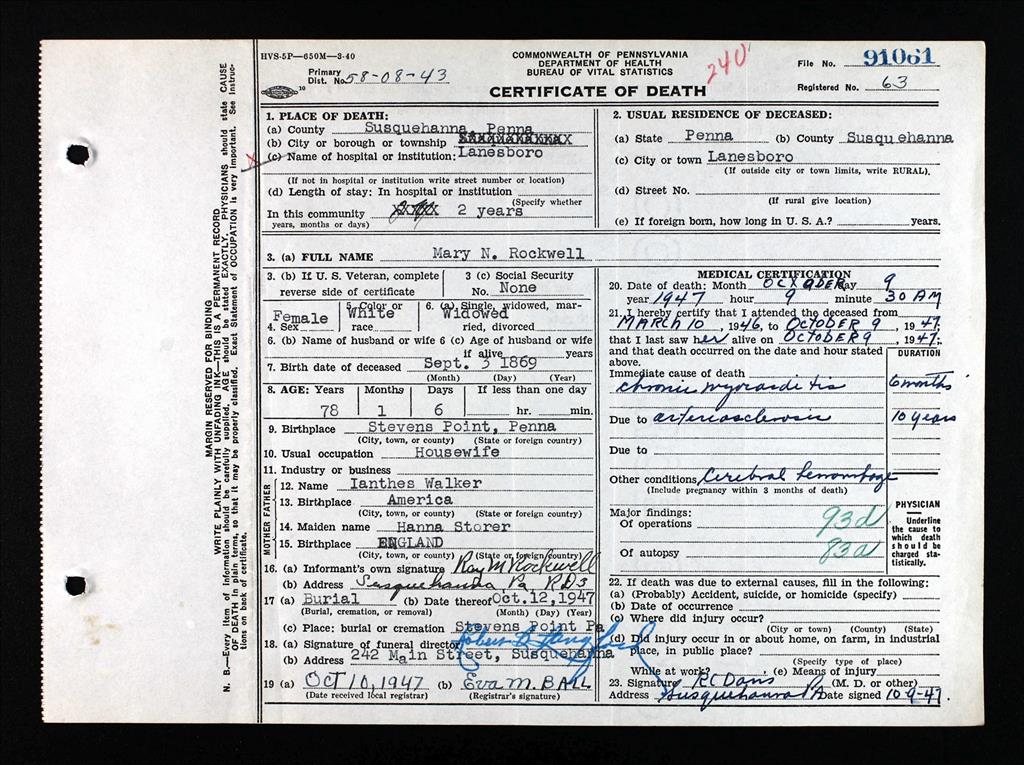 HVS-5P—650M—3-40
COMMONWEALTH OF PENNSYLVANIA
DEPARTMENT OF HEALTH
BUREAU OF VITAL STATISTICS
CERTIFICATE OF DEATH
240
File No. 91061
Registered No. 63
Primary Dist. No. 58-08-43
1. PLACE OF DEATH:
(a) County Susquehanna, Penna
(b) City or borough or township
(c) Name of hospital or institution: Lanesboro
(If not in hospital or institution write street number or location)
(d) Length of stay: In hospital or institution
(Specify whether
In this community 2 years
years, months or days)
2. USUAL RESIDENCE OF DECEASED:
(a) State Penna (b) County Susquehanna
(c) City or town Lanesboro
(If outside city or town limits, write RURAL).
(d) Street No.
(If rural give location)
(e) If foreign born, how long in U. S. A.? years.
3. (a) FULL NAME Mary N. Rockwell
3. (b) If U. S. Veteran, complete reverse side of certificate
3 (c) Social Security No. None
4. Sex Female
5. Color or race White
6. (a) Single, widowed, married, divorced Widowed
6. (b) Name of husband or wife
6 (c) Age of husband or wife if alive years
7. Birth date of deceased Sept. 3 1869
(Month) (Day) (Year)
8. AGE: Years Months Days If less than one day
78 1 6 hr. min.
9. Birthplace Stevens Point, Penna
(City, town, or county) (State or foreign country)
10. Usual occupation Housewife
11. Industry or business
FATHER
12. Name Ianthes Walker
13. Birthplace America
(City, town, or county) (State or foreign country)
MOTHER
14. Maiden name Hanna Storer
15. Birthplace ENGLAND
(City, town, or county) (State or foreign country)
16. (a) Informant's own signature Ray M Rockwell
(b) Address Susquehanna Pa RD3
17 (a) Burial (b) Date thereof Oct.12,1947
(Burial, cremation, or removal) (Month) (Day) (Year)
(c) Place: burial or cremation Stevens Point Pa
18. (a) Signature of funeral director
(b) Address 242 Main Street, Susquehanna
19 (a) OCT 10, 1947 (b) Eva M. BALL
(Date received local registrar) (Registrar's signature)
MEDICAL CERTIFICATION
20. Date of death: Month OCTOBER day 9
year 1947 hour 9 minute 30 AM
21. I hereby certify that I attended the deceased from
MARCH 10, 1946, to OCTOBER 9, 1947;
that I last saw her alive on OCTOBER 9, 1947;
and that death occurred on the date and hour stated above.
DURATION
Immediate cause of death
chronic myocarditis 6 months
Due to arteriosclerosis 10 years
Due to
Other conditions Cerebral hemorrhage
(Include pregnancy within 3 months of death)
Major findings:
Of operations 93d
Of autopsy 83a
PHYSICIAN
Underline the cause to which death should be charged statistically.
22. If death was due to external causes, fill in the following:
(a) (Probably) Accident, suicide, or homicide (specify)
(b) Date of occurrence
(c) Where did injury occur?
(City or town) (County) (State)
(d) Did injury occur in or about home, on farm, in industrial place, in public place?
(Specify type of place)
While at work? (e) Means of injury
23. Signature RC Davis (M. D. or other)
Address Susquehanna Pa Date signed 10-9-47
MARGIN RESERVED FOR BINDING
WRITE PLAINLY WITH UNFADING INK—THIS IS A PERMANENT RECORD
N. B.—Every item of information should be carefully supplied. AGE should be stated EXACTLY. PHYSICIANS should state CAUSE
OF DEATH in plain terms, so that it may be properly classified. Exact Statement of OCCUPATION is very important. See Instruc-
tions on back of certificate.